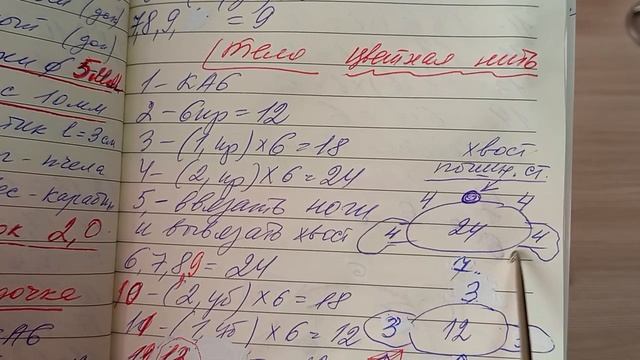 7,8,9, = 9
(Тело цветная нить
1 - КА6
2 - 6пр = 12
3 - (1, пр) × 6 = 18
4 - (2, пр) × 6 = 24
5 - ввязать ноги
и вывязать хвост
6, 7, 8, 9 = 24
10 - (2, уб) × 6 = 18
11 - (1, уб) × 6 = 12
хвост
пышн. ст.
4 4
4 24 4
7
3
3 12
(дол)
5
с 10мм
l = 3см
- пчела
- карабин
2,0
КА6
12 13